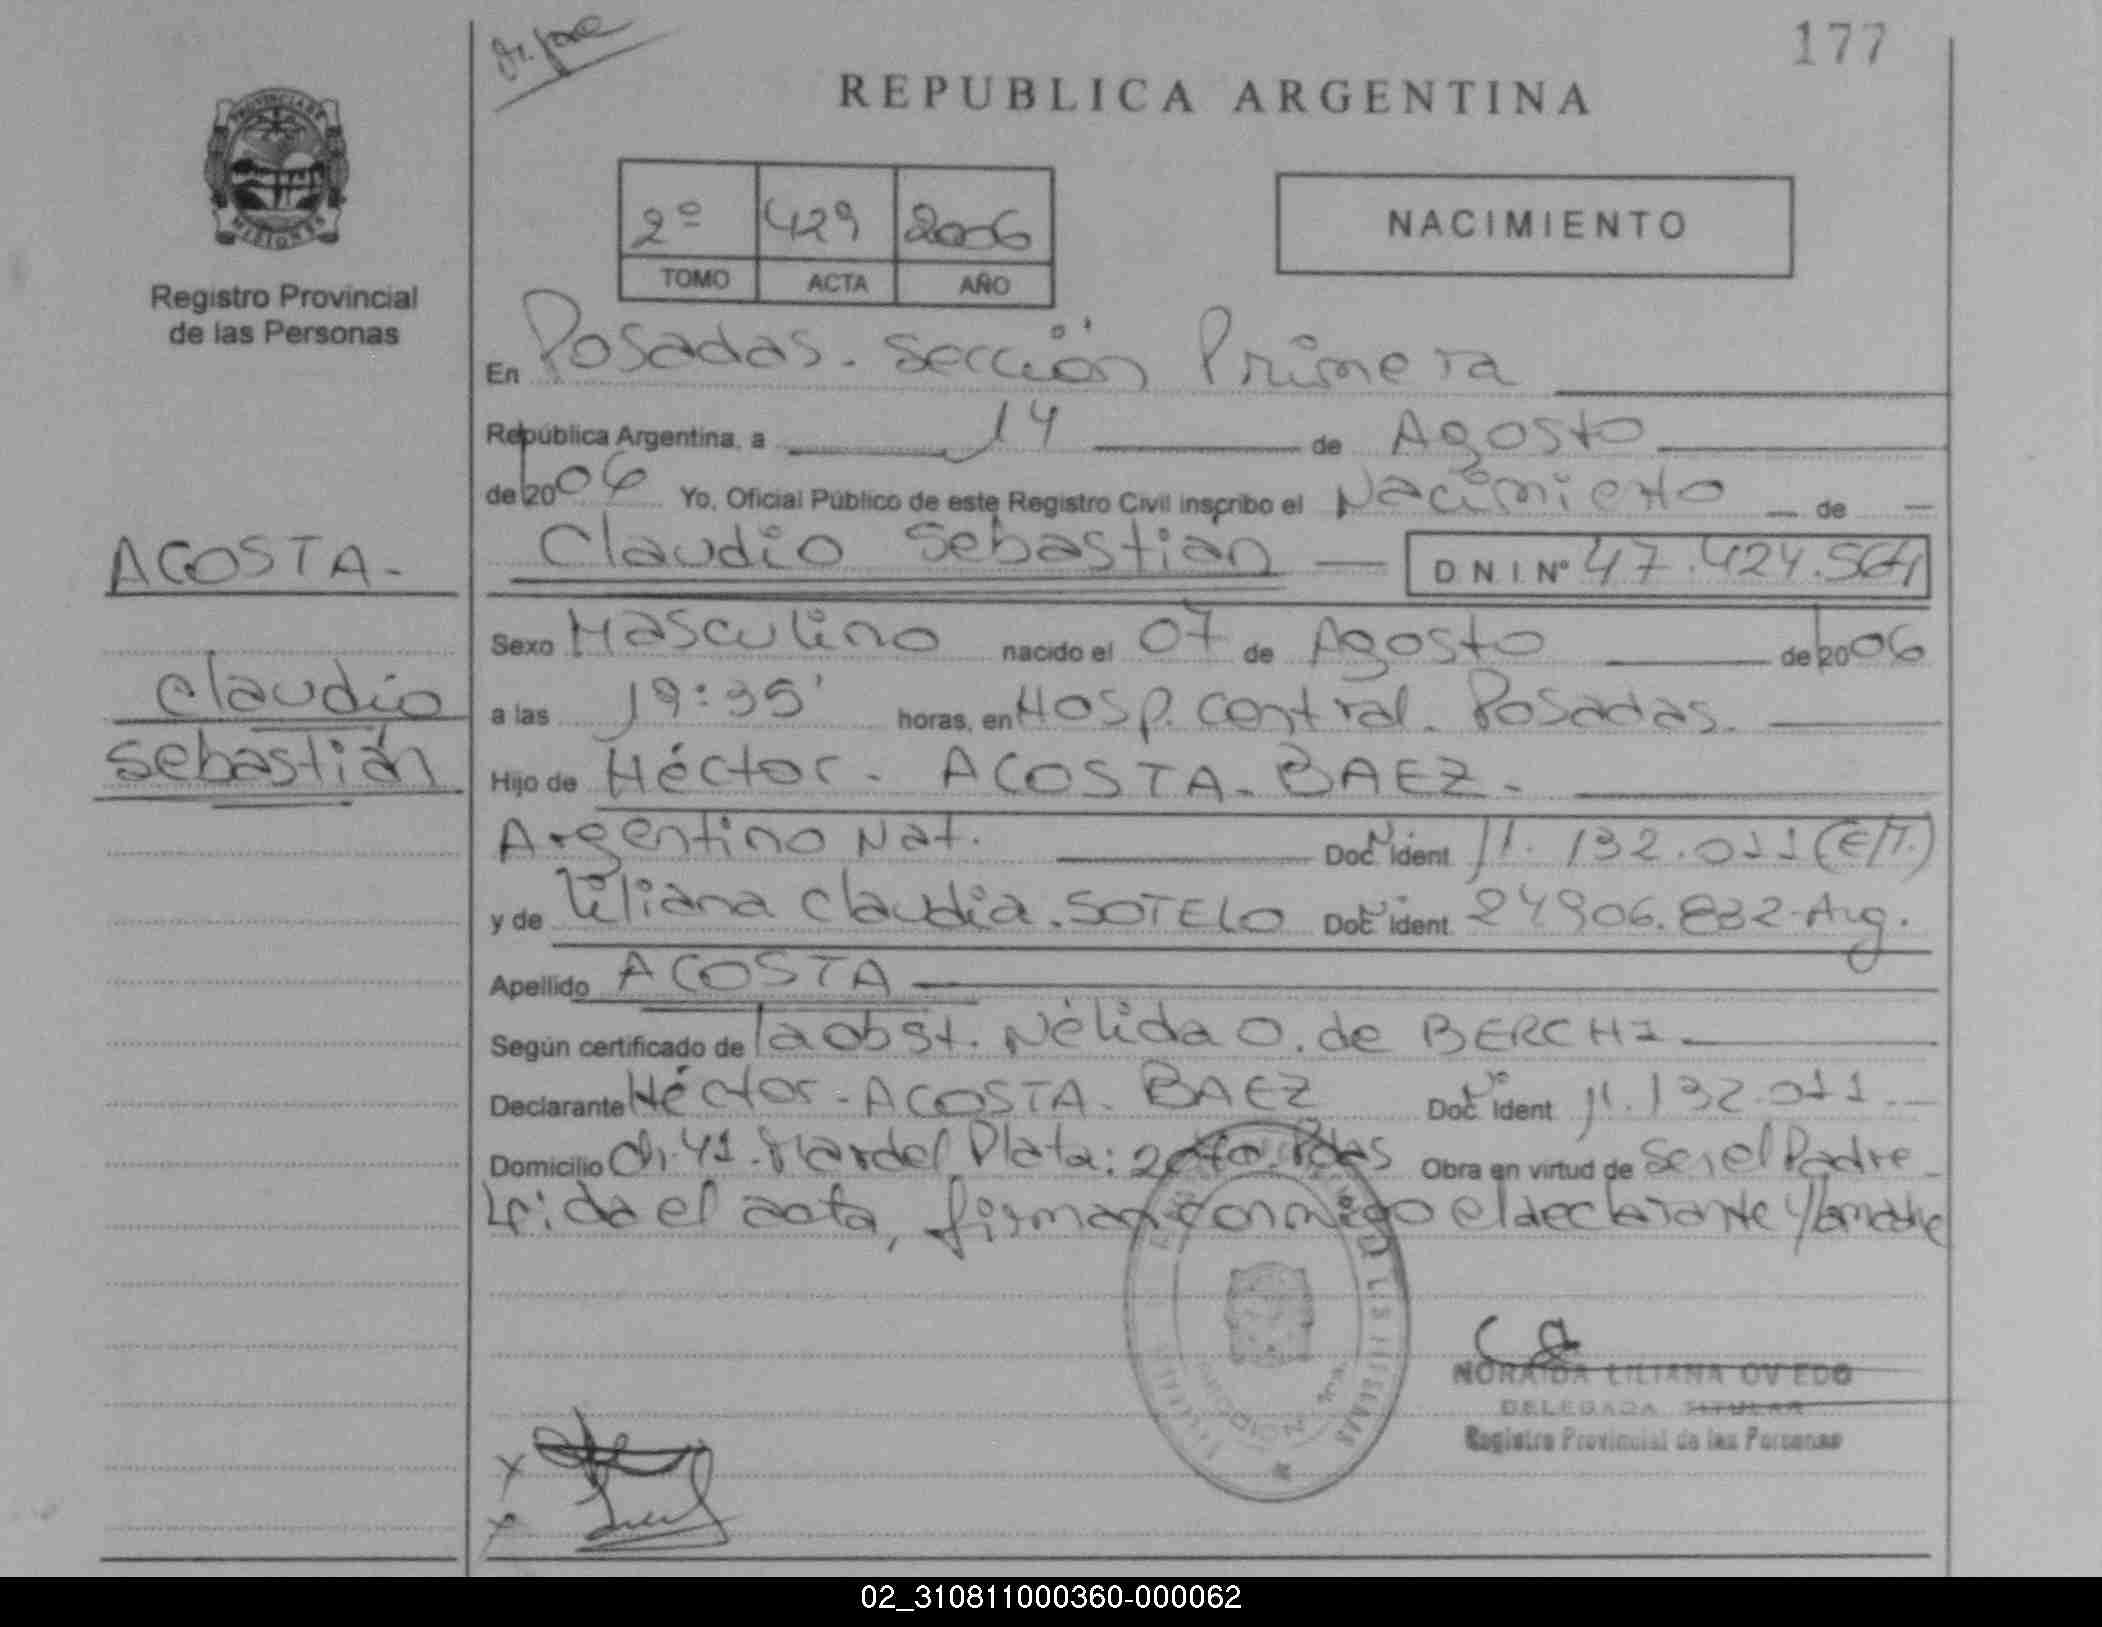 177
REPUBLICA ARGENTINA
PROVINCIA DE
MISIONES
Registro Provincial
de las Personas
2º 429 2006
TOMO ACTA AÑO
NACIMIENTO
En Posadas. Sección Primera
República Argentina, a 14 de Agosto
de 2006 Yo, Oficial Público de este Registro Civil inscribo el Nacimiento de
ACOSTA-
Claudio Sebastián
Claudio Sebastian D.N.I. Nº 47.424.564
Sexo Masculino nacido el 07 de Agosto de 2006
a las 19:35' horas, en Hosp. Central. Posadas.
Hijo de Héctor - ACOSTA - BAEZ -
Argentino Nat. Doc Nº Ident 11.132.011 (E/T.)
y de Liliana Claudia. SOTELO Doc Nº Ident 24906.832-Arg.
Apellido ACOSTA
Según certificado de la obst. Nélida O. de BERCHI
Declarante Héctor - ACOSTA - BAEZ Doc Nº Ident 11.132.011
Domicilio Ch. 41. Mar del Plata: Pdas Obra en virtud de Ser el Padre
Leida el acta, firman conmigo el declarante y la madre
NORAIDA LILIANA OVIEDO
DELEGADA TITULAR
Registro Provincial de las Personas
02_310811000360-000062